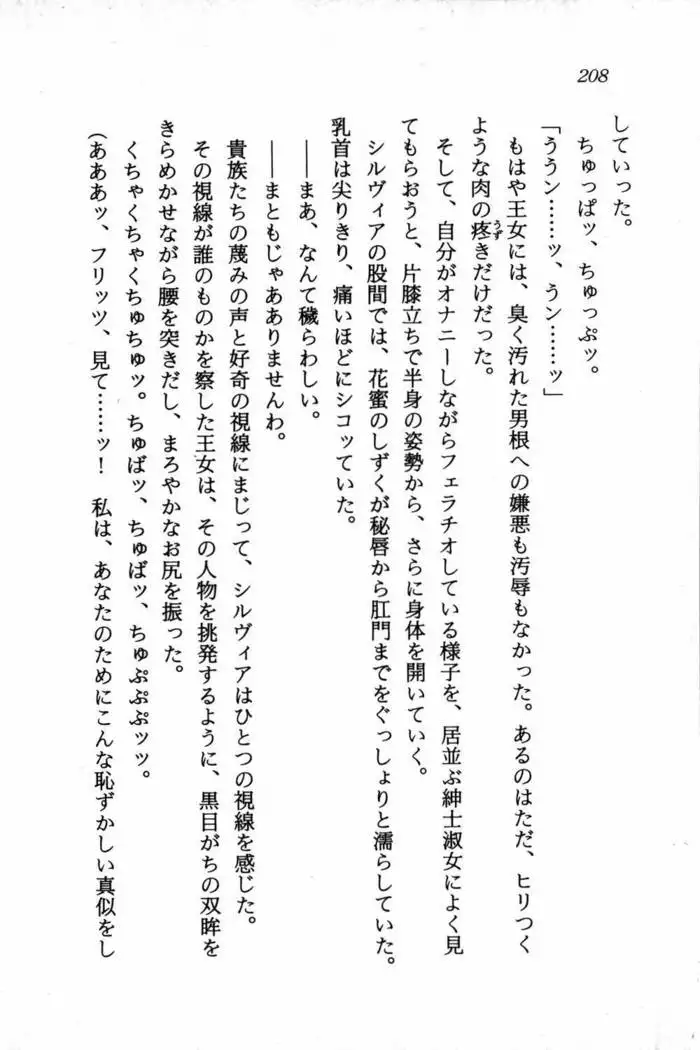 208
していった。
ちゅっぱッ、ちゅっぷッ。
「ううン……ッ、うン……ッ」
もはや王女には、臭く汚れた男根への嫌悪も汚辱もなかった。あるのはただ、ヒリつく
ような肉の疼きだけだった。
そして、自分がオナニーしながらフェラチオしている様子を、居並ぶ紳士淑女によく見
てもらおうと、片膝立ちで半身の姿勢から、さらに身体を開いていく。
シルヴィアの股間では、花蜜のしずくが秘唇から肛門までをぐっしょりと濡らしていた。
乳首は尖りきり、痛いほどにシコッていた。
――まあ、なんて穢らわしい。
――まともじゃあありませんわ。
貴族たちの蔑みの声と好奇の視線にまじって、シルヴィアはひとつの視線を感じた。
その視線が誰のものかを察した王女は、その人物を挑発するように、黒目がちの双眸を
きらめかせながら腰を突きだし、まろやかなお尻を振った。
くちゃくちゃくちゅちゅッ。ちゅばッ、ちゅばッ、ちゅぷぷぷッッ。
(あああッ、フリッツ、見て……ッ！　私は、あなたのためにこんな恥ずかしい真似をし